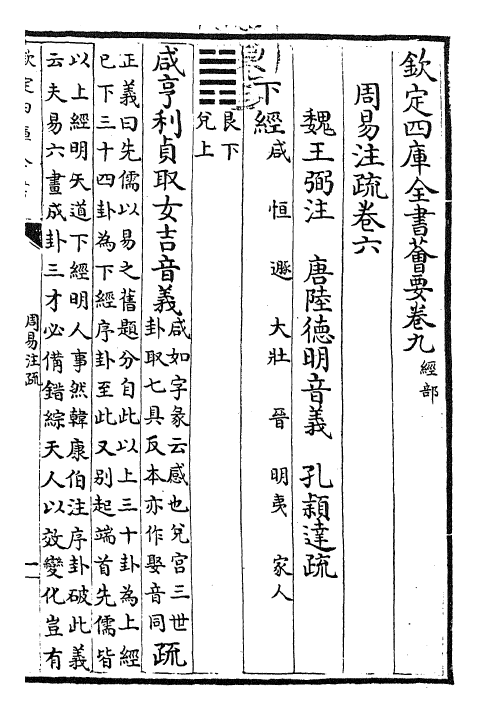 欽定四庫全書薈要卷九 經部
周易注疏卷六
魏王弼注 唐陸德明音義 孔穎達疏
下經 咸 恒 遯 大壯 晉 明夷 家人
艮下
兌上
咸亨利貞取女吉音義 咸如字彖云感也兌宮三世
卦取七具反本亦作娶音同 疏
正義曰先儒以易之舊題分自此以上三十卦為上經
已下三十四卦為下經序卦至此又别起端首先儒皆
以上經明天道下經明人事然韓康伯注序卦破此義
云夫易六畫成卦三才必備錯綜天人以效變化豈有
周易注疏
一